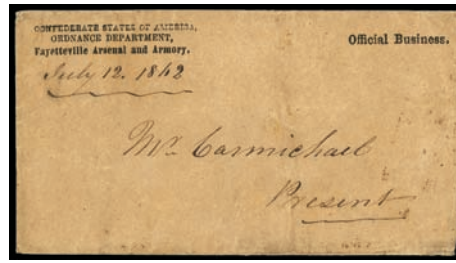 CONFEDERATE STATES OF AMERICA,
ORDNANCE DEPARTMENT,
Fayetteville Arsenal and Armory.
Official Business.
July 12. 1862
Mr. Carmichael
Present